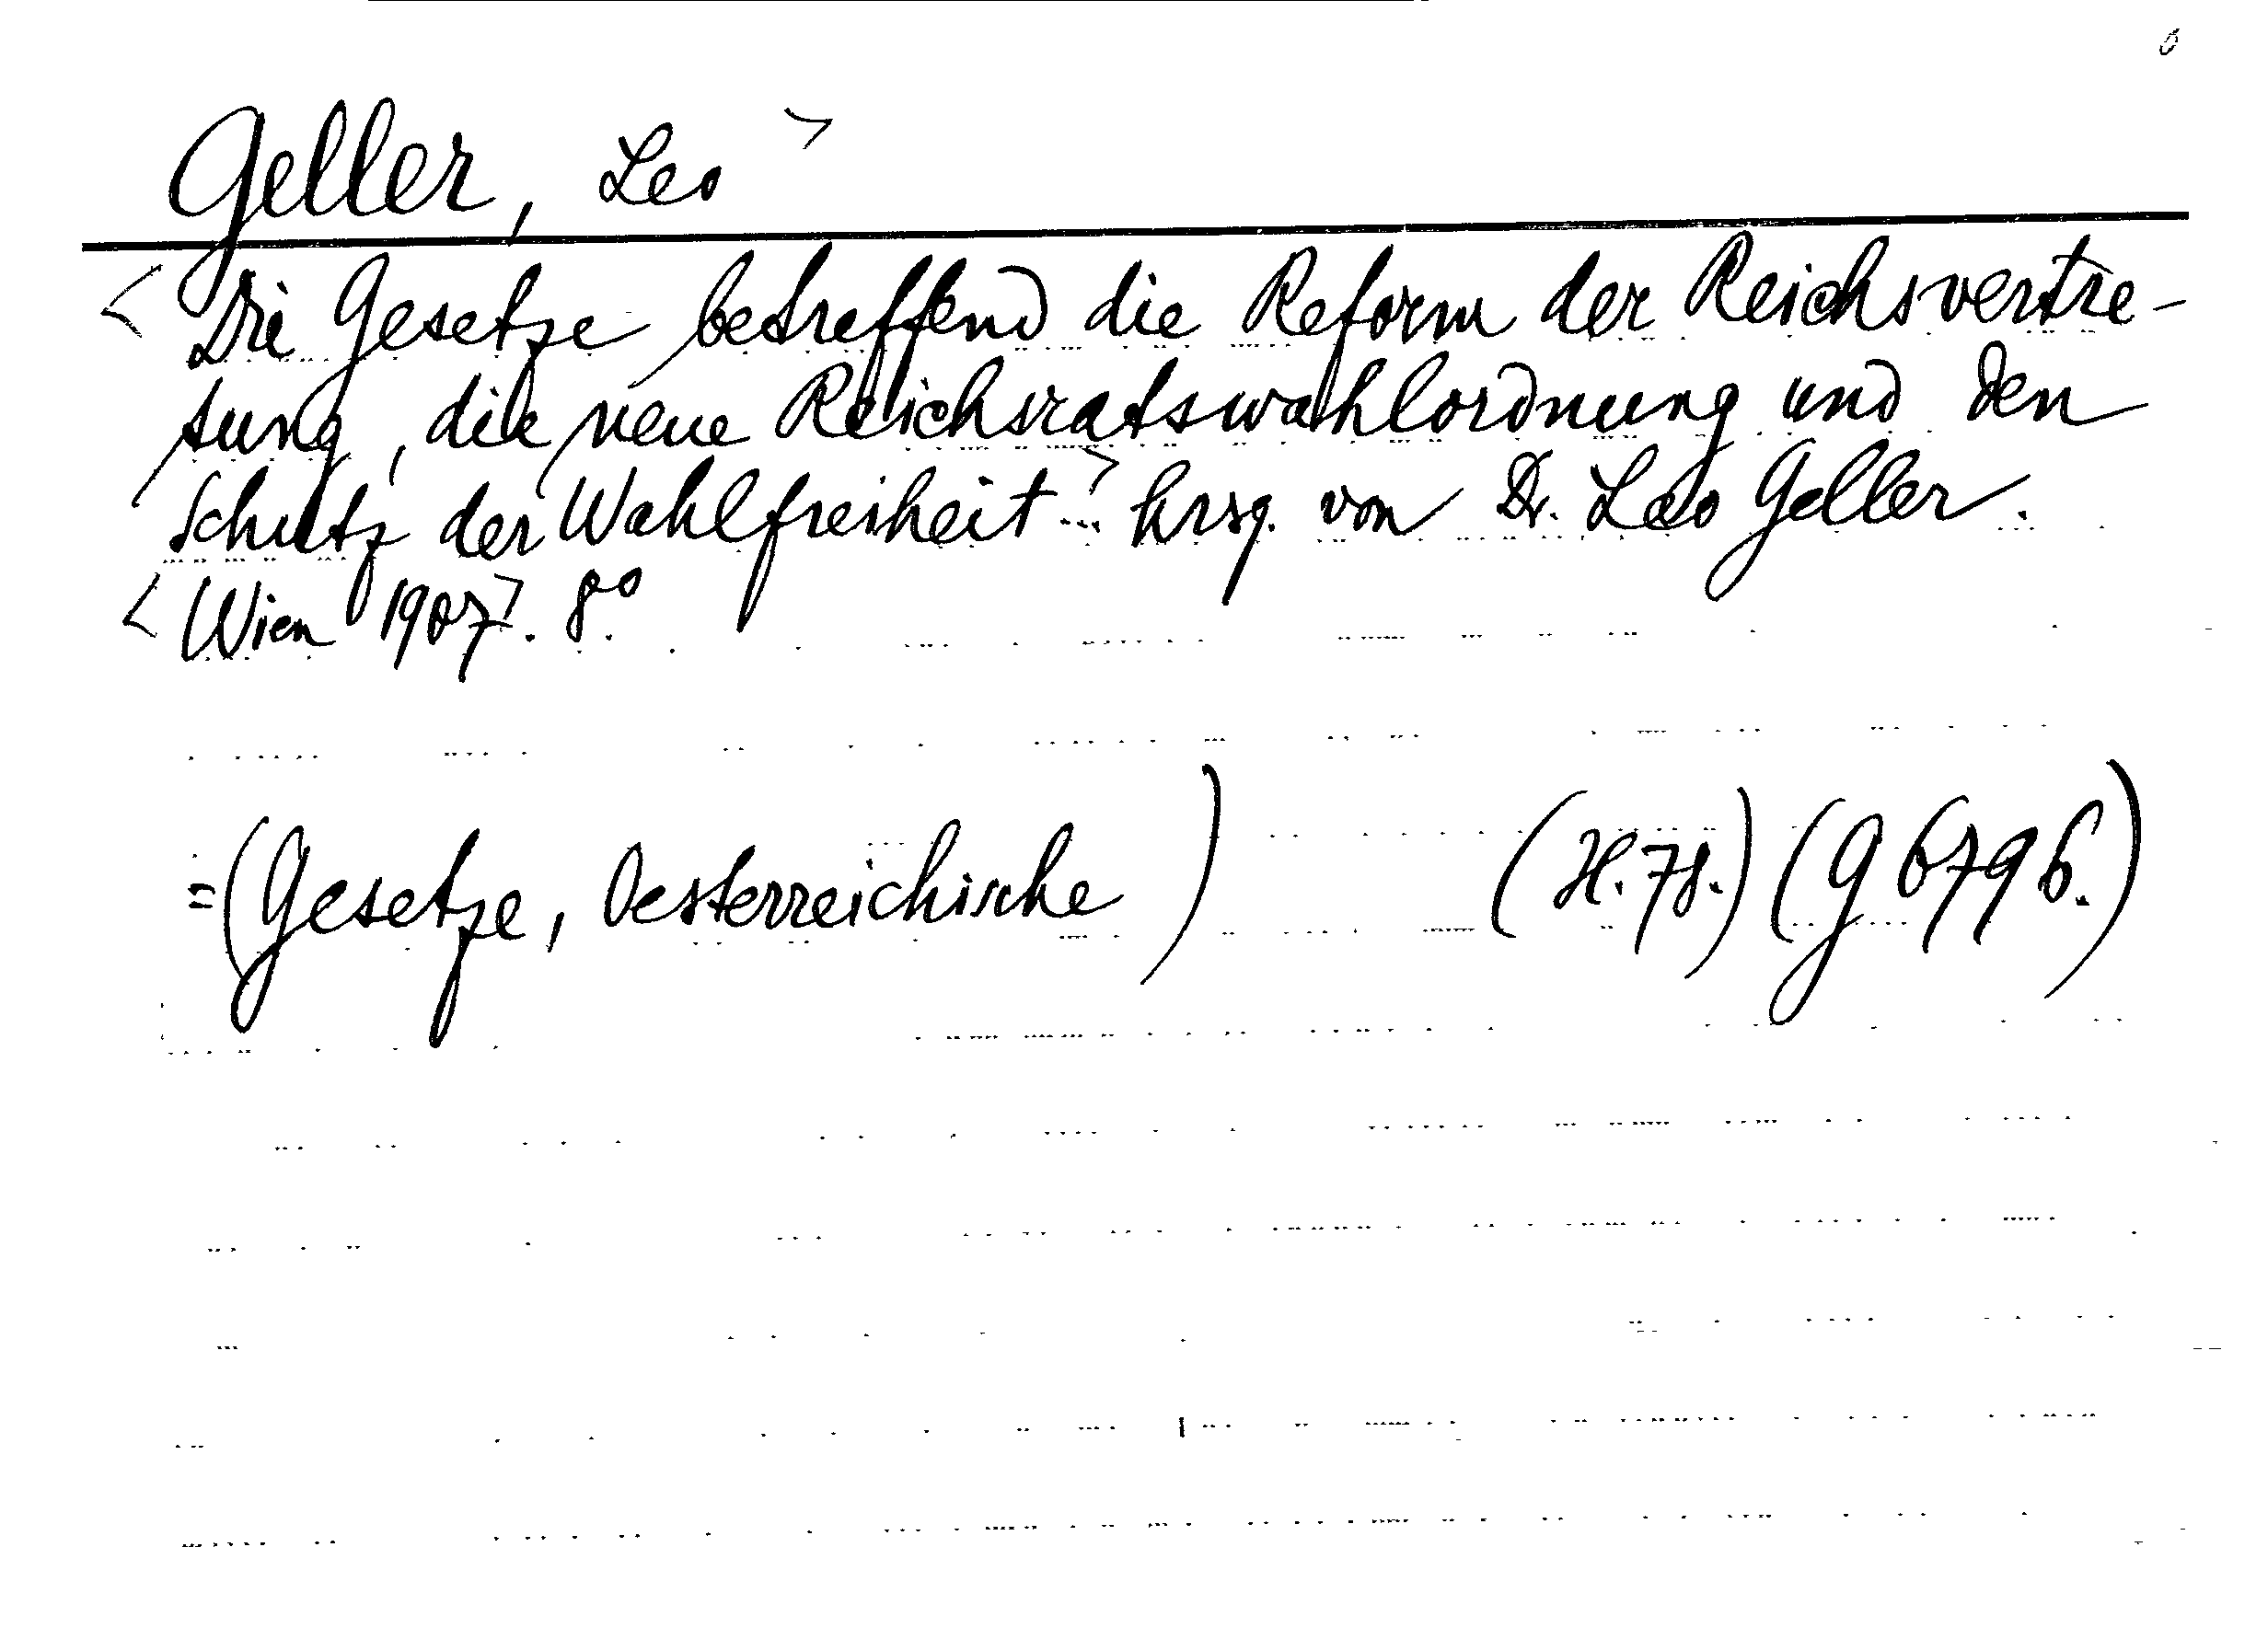 Geller, Leo >
< Die Gesetze betreffend die Reform der Reichsvertre-
tung, die neue Reichsratswahlordnung und den
Schutz der Wahlfreiheit ...> hrsg. von Dr. Leo Geller.
< Wien 1907>. 8°.
=(Gesetze, Oesterreichische) (H. 78.) (G 6796.)